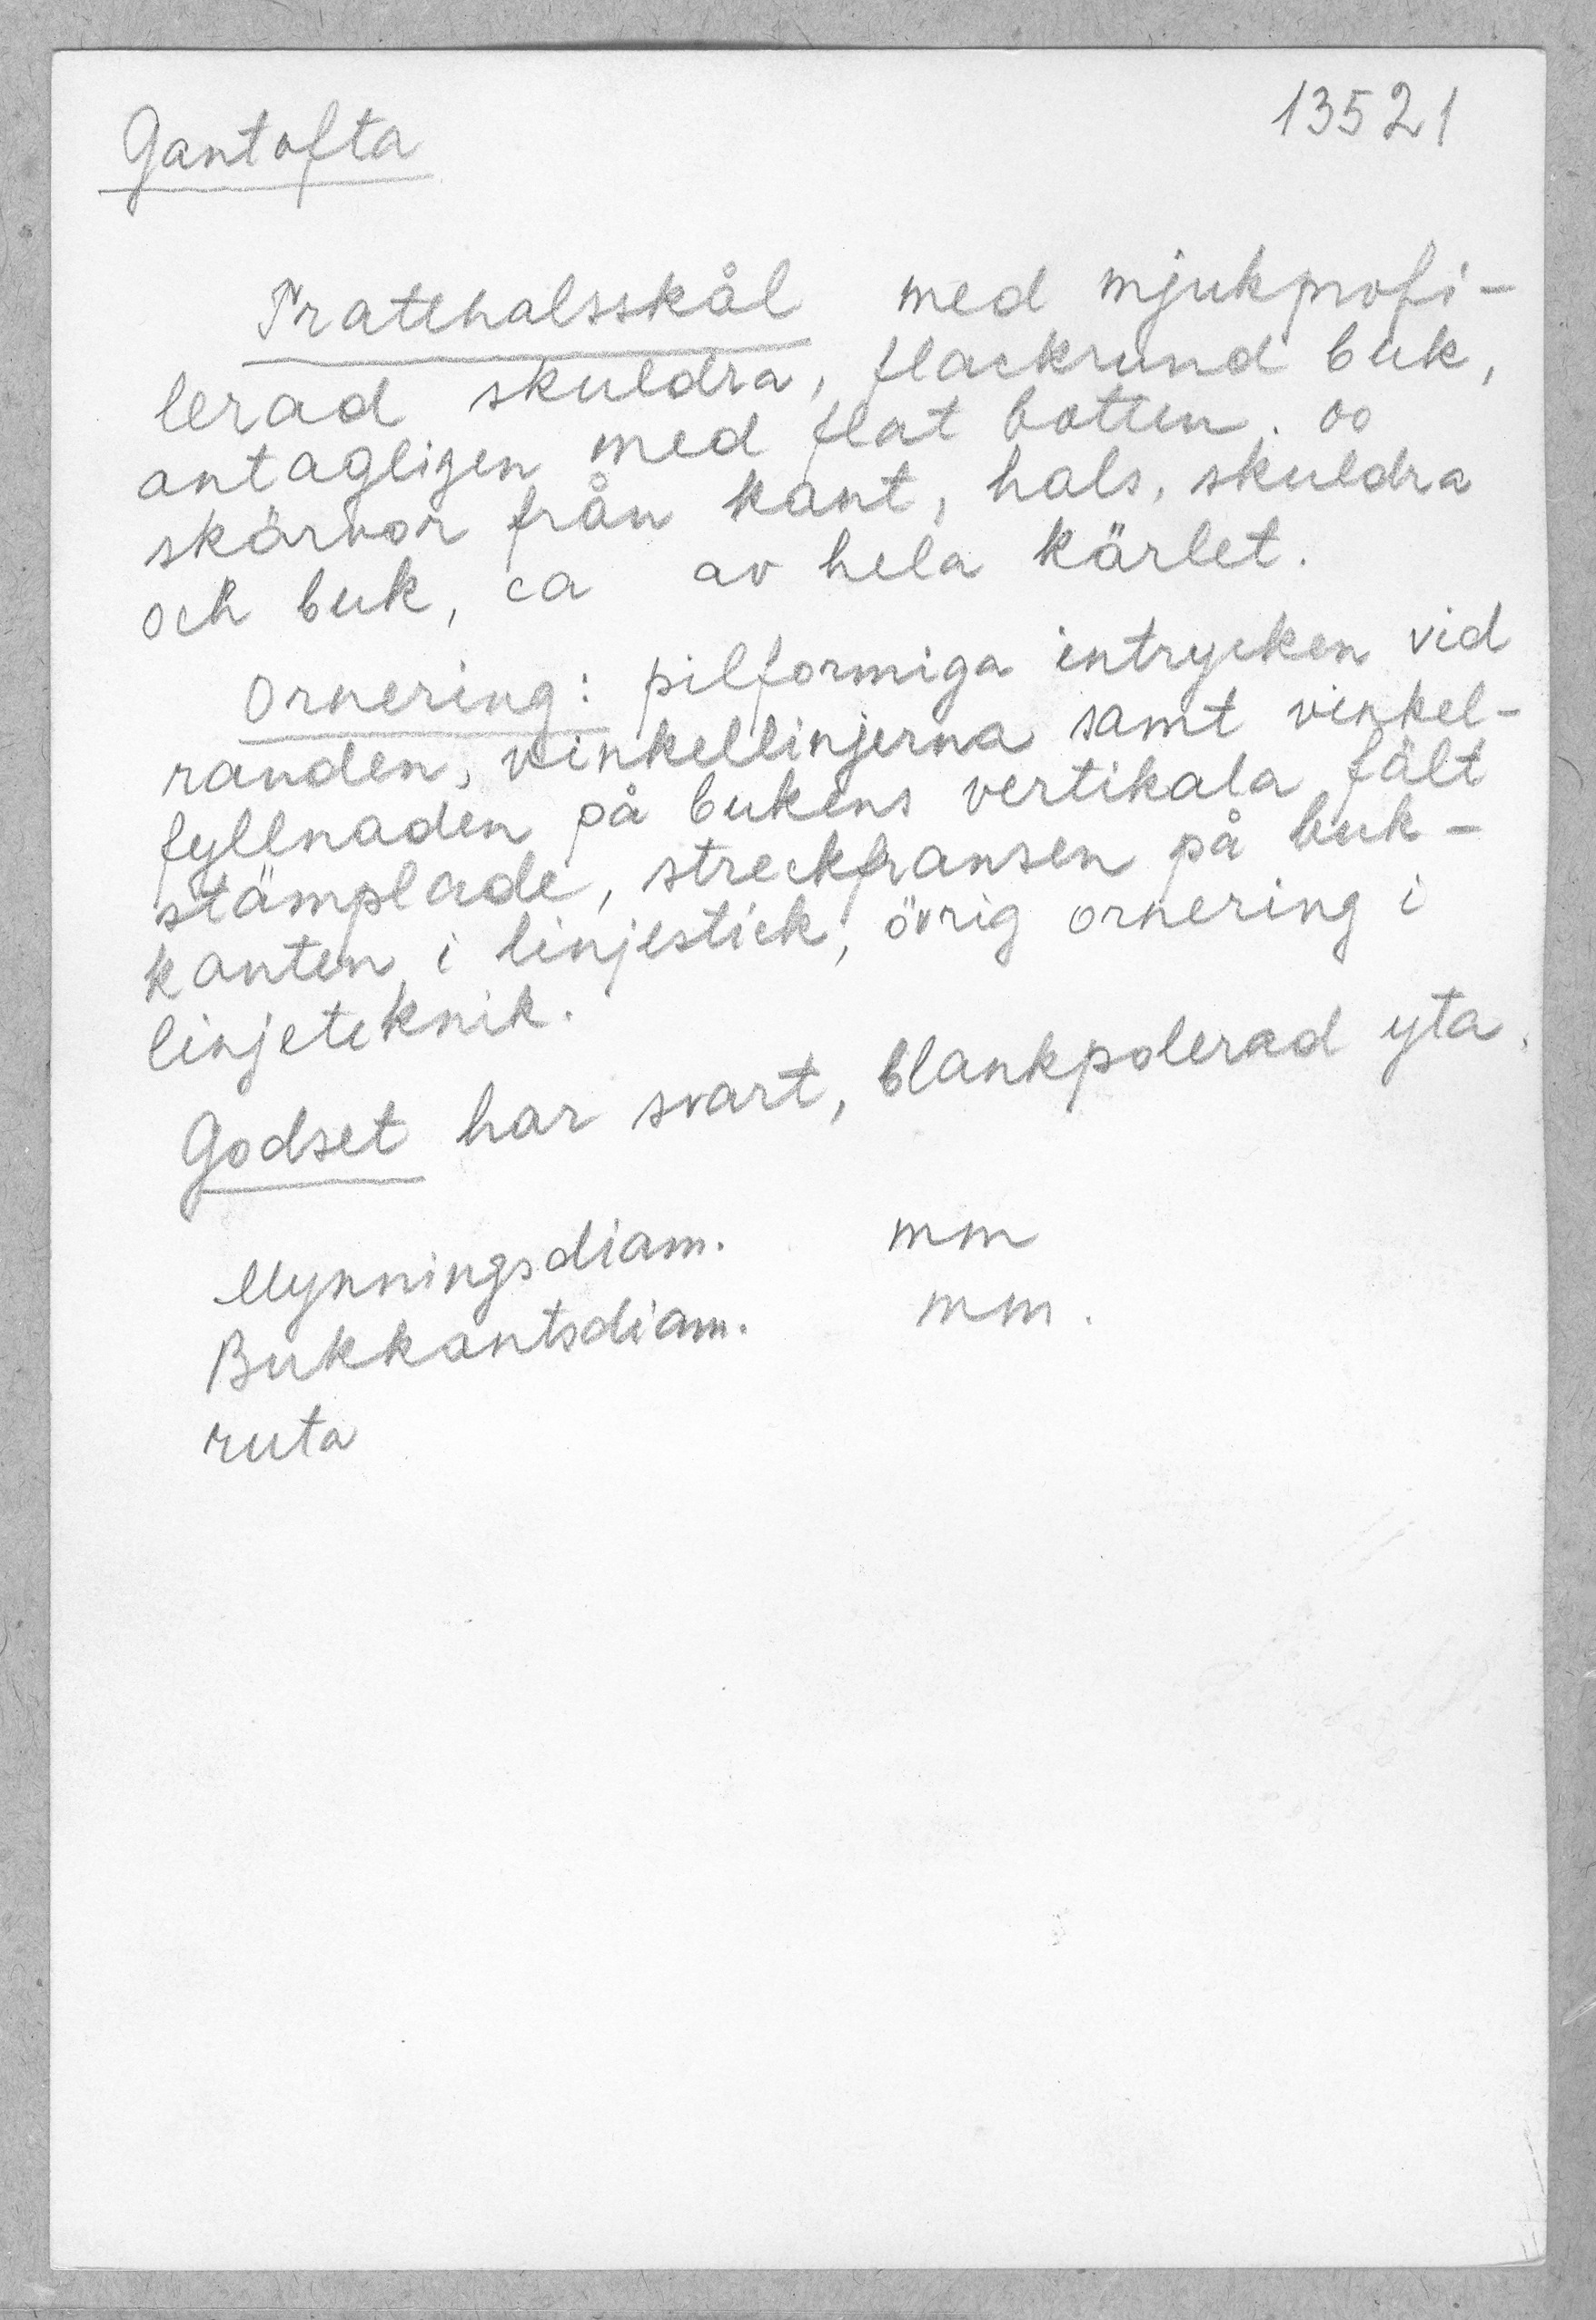 Gantofta
13521
Tratthalsskål med mjukprofi-
lerad skuldra, flackrund buk,
antagligen med flat botten. oo
skärvor från kant, hals, skuldra
och buk, ca av hela kärlet.
Ornering: pilformiga intrycken vid
randen, vinkellinjerna samt vinkel-
fyllnaden på bukens vertikala fält
stämplade, streckfransen på buk-
kanten i linjestick, övrig ornering i
linjeteknik.
Godset har svart, blankpolerad yta.
Mynningsdiam. mm
Bukkantsdiam. mm.
ruta